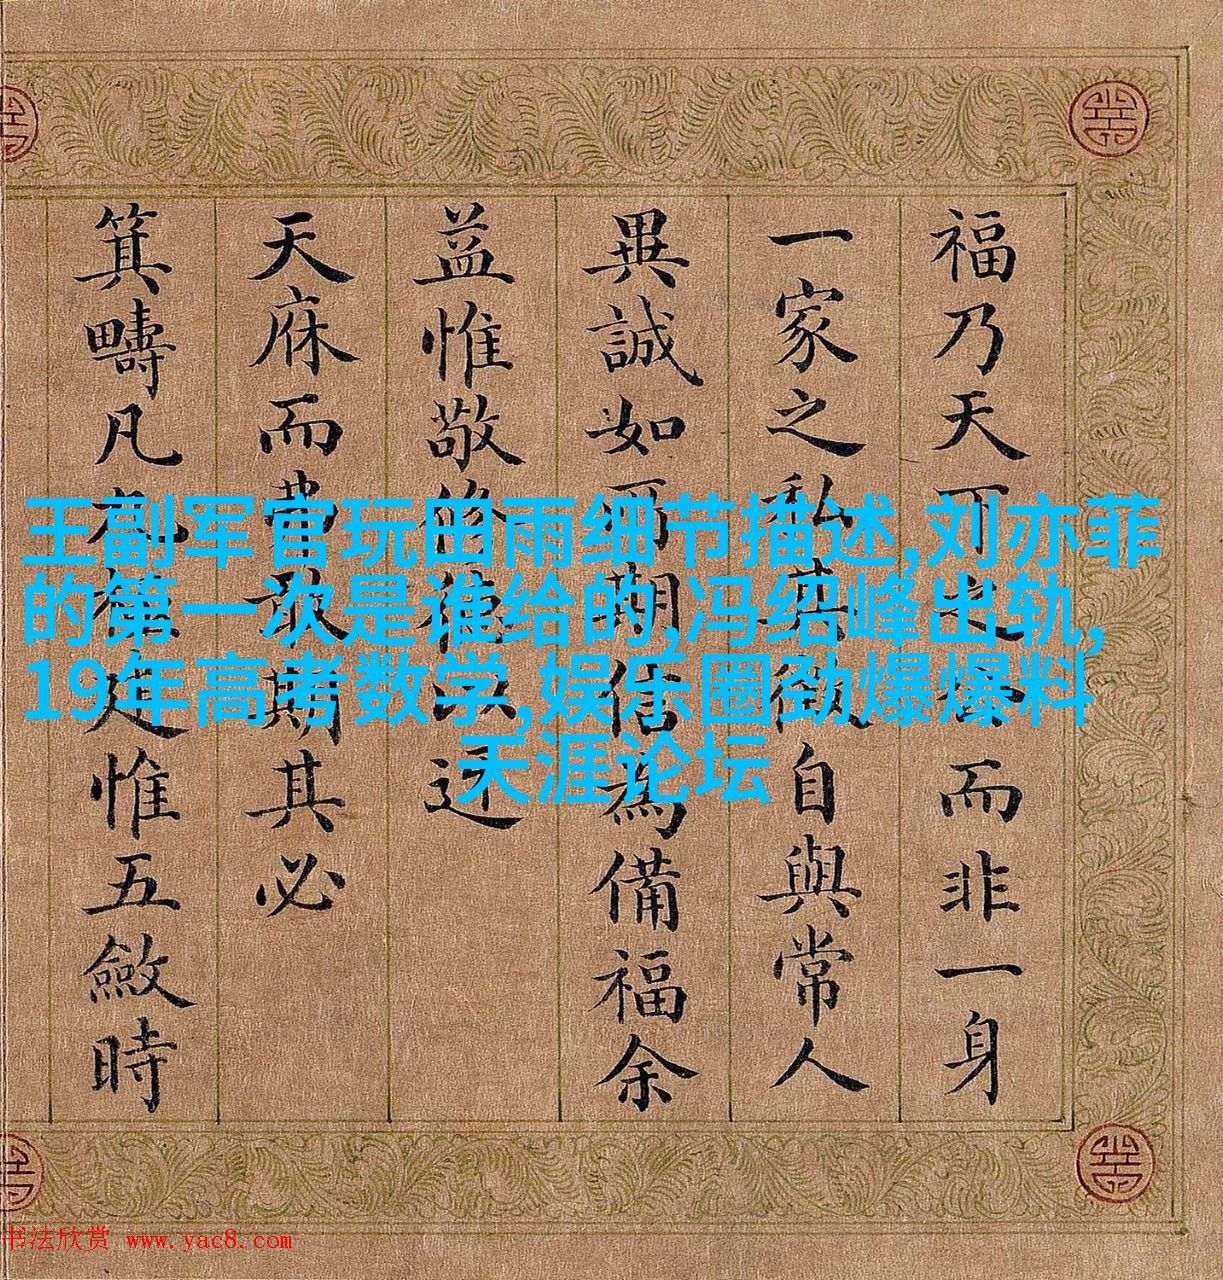 王副军官玩田雨细节描述,刘亦菲
的第一次是谁给的,冯绍峰出轨,
19年高考数学,娱乐圈劲爆爆料
天涯论坛
福乃天下之而非一身
一家之私其自與常人
異誠如所期信為備福余
益惟敬修以迓
天庥而敢期其必
箕疇凡九建惟五斂時
书法欣赏 www.yac8.com